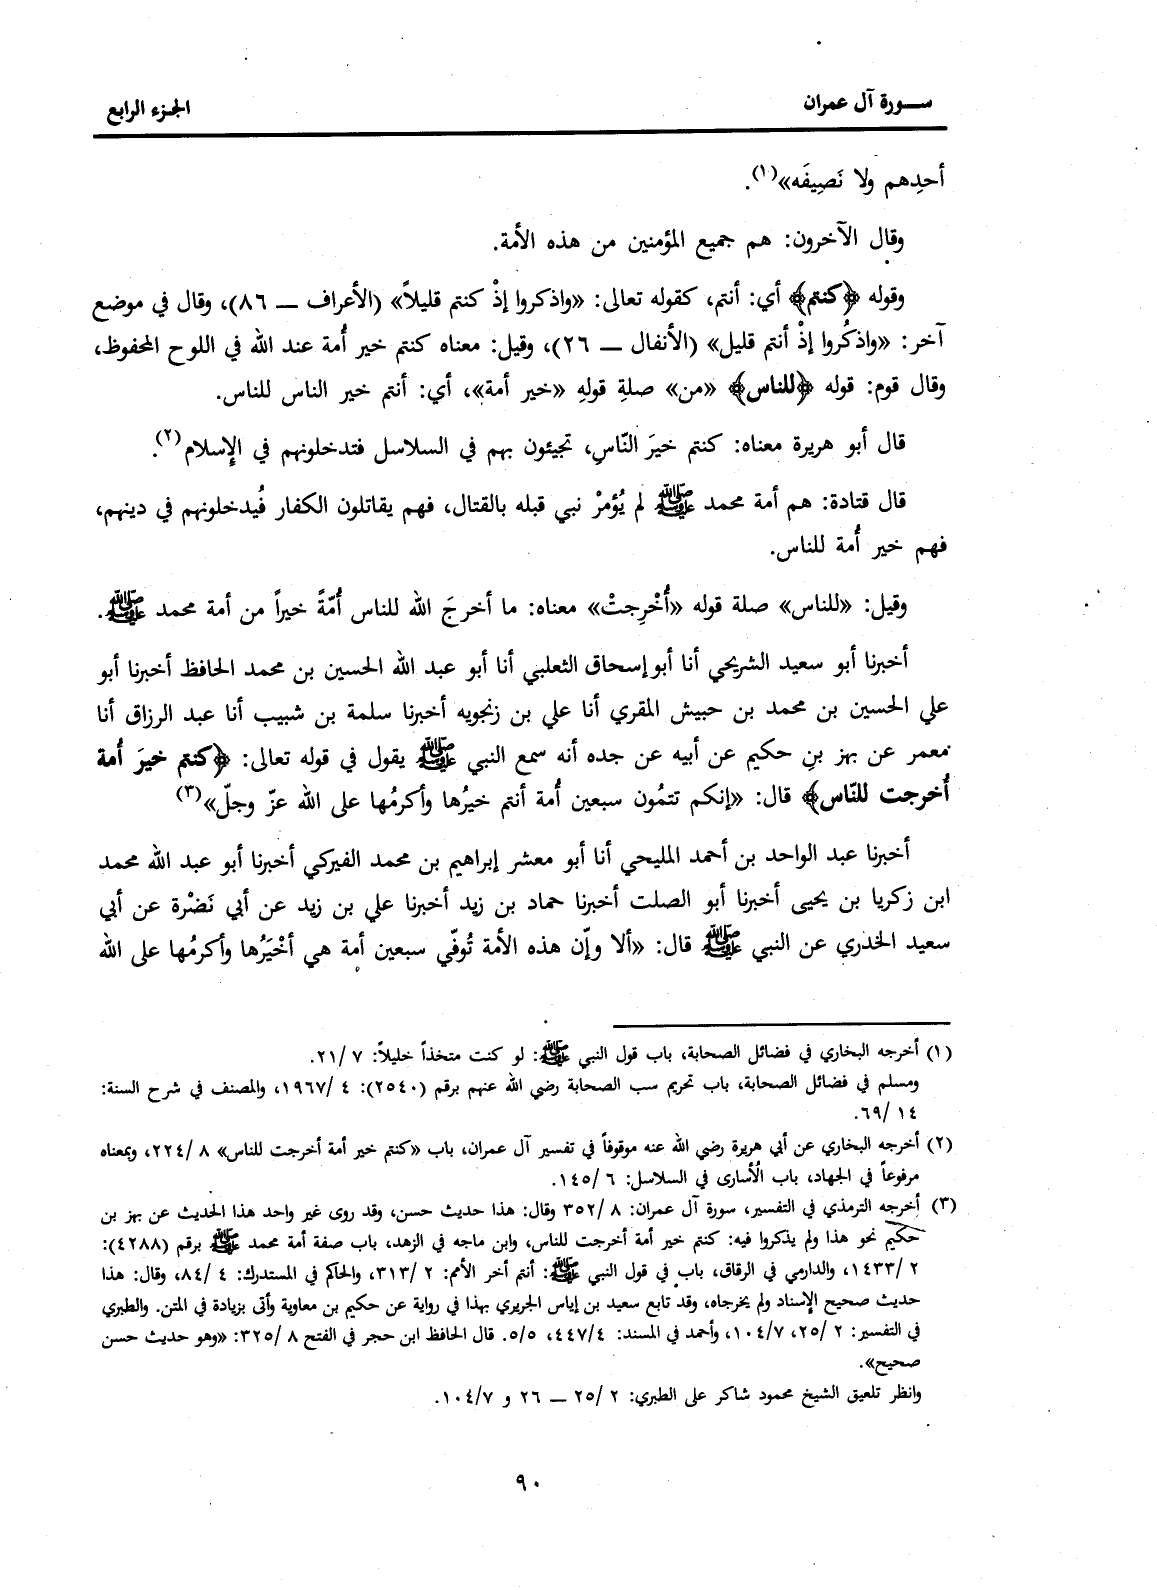 ســورة آل عمران
الجزء الرابع
أحدِهم ولا نَصِيفَه»(١).
وقال الآخرون: هم جميع المؤمنين من هذه الأمة.
وقوله ﴿كنتم﴾ أي: أنتم، كقوله تعالى: «واذكروا إذْ كنتم قليلاً» (الأعراف ــ ٨٦)، وقال في موضع
آخر: «واذكُروا إذْ أنتم قليل» (الأنفال ــ ٢٦)، وقيل: معناه كنتم خير أُمة عند الله في اللوح المحفوظ،
وقال قوم: قوله ﴿للناس﴾ «من» صلةِ قولهِ «خير أمة»، أي: أنتم خير الناس للناس.
قال أبو هريرة معناه: كنتم خيرَ النّاسِ، تجيئون بهم في السلاسل فتدخلونهم في الإسلام(٢).
قال قتادة: هم أمة محمد ﷺ لم يُؤمرْ نبي قبله بالقتال، فهم يقاتلون الكفار فُيدخلونهم في دينهم،
فهم خير أُمة للناس.
وقيل: «للناس» صلة قوله «أُخْرِجتْ» معناه: ما أخرجَ الله للناس أُمّةً خيراً من أمة محمد ﷺ.
أخبرنا أبو سعيد الشريحي أنا أبو إسحاق الثعلبي أنا أبو عبد الله الحسين بن محمد الحافظ أخبرنا أبو
علي الحسين بن محمد بن حبيش المقري أنا علي بن زنجويه أخبرنا سلمة بن شبيب أنا عبد الرزاق أنا
معمر عن بهز بنِ حكيم عن أبيه عن جده أنه سمع النبي ﷺ يقول في قوله تعالى: ﴿كنتم خيرَ أُمة
أُخرجت للنّاس﴾ قال: «إنكم تتمُون سبعين أُمة أنتم خيرُها وأكرمُها على الله عزّ وجلّ»(٣)
أخبرنا عبد الواحد بن أحمد المليحي أنا أبو معشر إبراهيم بن محمد الفيركي أخبرنا أبو عبد الله محمد
ابن زكريا بن يحيى أخبرنا أبو الصلت أخبرنا حماد بن زيد أخبرنا علي بن زيد عن أبي نَضْرة عن أبي
سعيد الخدري عن النبي ﷺ قال: «ألا وإّن هذه الأمة تُوفّي سبعين أمة هي أخْيَرُها وأكرمُها على الله
(١) أخرجه البخاري في فضائل الصحابة، باب قول النبي ﷺ: لو كنت متخذاً خليلاً: ٧ /٢١.
ومسلم في فضائل الصحابة، باب تحريم سب الصحابة رضي الله عنهم برقم (٢٥٤٠): ٤ /١٩٦٧، والمصنف في شرح السنة:
١٤ /٦٩.
(٢) أخرجه البخاري عن أبي هريرة رضي الله عنه موقوفاً في تفسير آل عمران، باب «كنتم خير أمة أخرجت للناس» ٨ /٢٢٤، وبمعناه
مرفوعاً في الجهاد، باب الأُسارى في السلاسل: ٦ /١٤٥.
(٣) أخرجه الترمذي في التفسير، سورة آل عمران: ٨ /٣٥٢ وقال: هذا حديث حسن، وقد روى غير واحد هذا الحديث عن بهز بن
حكيم نحو هذا ولم يذكروا فيه: كنتم خير أمة أخرجت للناس، وابن ماجه في الزهد، باب صفة أمة محمد ﷺ برقم (٤٢٨٨):
٢ /١٤٣٣، والدارمي في الرقاق، باب في قول النبي ﷺ: أنتم أخر الأمم: ٢ /٣١٣، والحاكم في المستدرك: ٤ /٨٤، وقال: هذا
حديث صحيح الإسناد ولم يخرجاه، وقد تابع سعيد بن إياس الجريري بهذا في رواية عن حكيم بن معاوية وأتى بزيادة في المتن. والطبري
في التفسير: ٢ /٢٥، ٧ /١٠٤، وأحمد في المسند: ٤ /٤٤٧، ٥/٥. قال الحافظ ابن حجر في الفتح ٨ /٣٢٥: «وهو حديث حسن
صحيح».
وانظر تلعيق الشيخ محمود شاكر على الطبري: ٢ /٢٥ ــ ٢٦ و ٧ /١٠٤.
٩٠